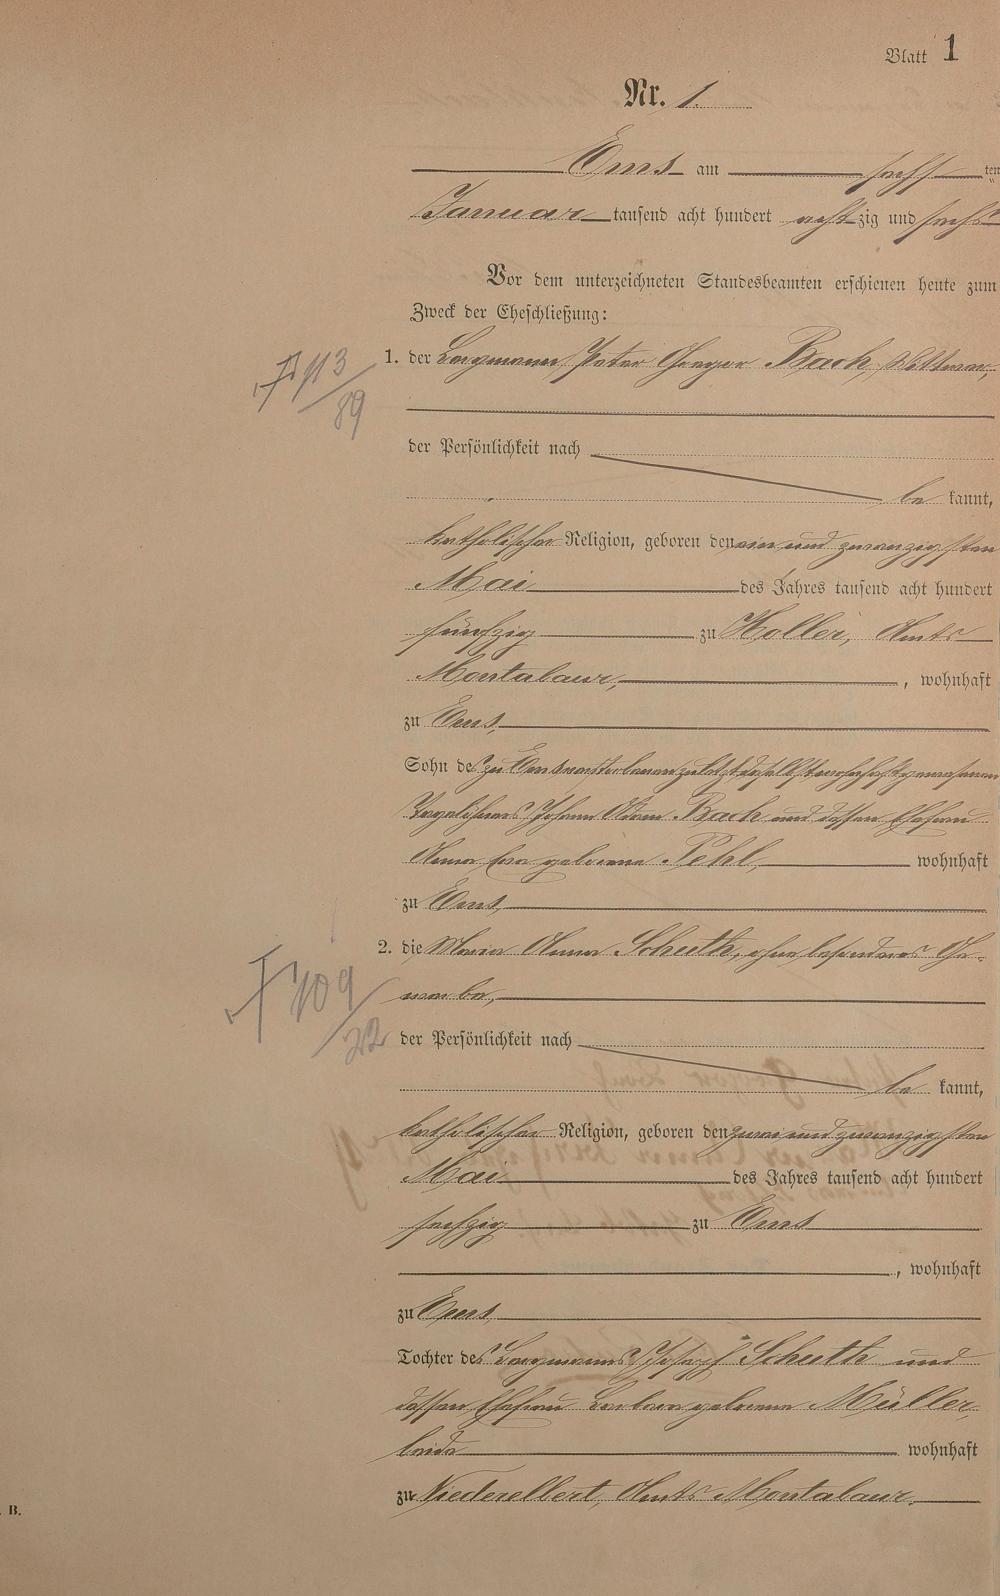 Blatt 1
Nr. 1.
Ems am sechsten
Januar tausend acht hundert achtzig und sechs
Vor dem unterzeichneten Standesbeamten erschienen heute zum
Zweck der Eheschließung:
1. der Bergmann Peter Gregor Bach, Wittwer,
† 113
/89
der Persönlichkeit nach
be kannt,
katholischer Religion, geboren den ein und zwanzigsten
Mai des Jahres tausend acht hundert
fünfzig zu Holler, Amts
Montabaur, , wohnhaft
zu Ems,
Sohn des zu Ems verstorbenen zuletzt daselbst wohnhaft gewesenen
Tagelöhners Johann Adam Bach und dessen Ehefrau
Anna Eva geborene Pehl, wohnhaft
zu Ems,
2. die Maria Anna Scheeth, ohne besonderes Ge-
werbe,
† 109
/22
der Persönlichkeit nach
be kannt,
katholischer Religion, geboren den zwei und zwanzigsten
Mai des Jahres tausend acht hundert
sechzig zu Ems
, wohnhaft
zu Ems,
Tochter des Bergmanns Joseph Scheeth und
dessen Ehefrau Barbara geborene Müller,
beide wohnhaft
zu Niederelbert, Amts Montabaur.
B.